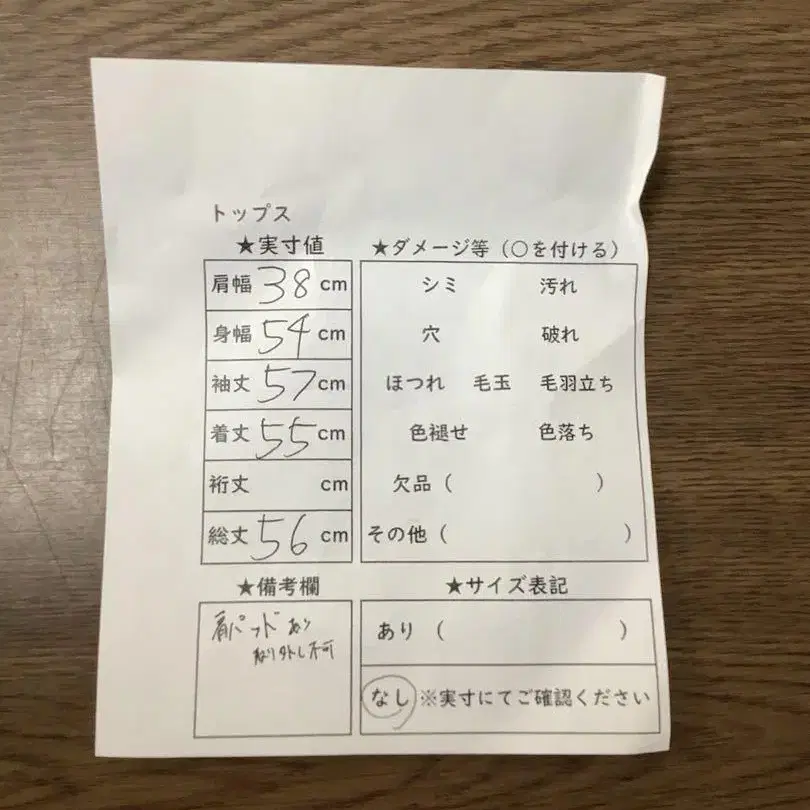 トップス
★実寸値
肩幅 38 cm
身幅 54 cm
袖丈 57 cm
着丈 55 cm
裄丈 cm
総丈 56 cm
★ダメージ等（○を付ける）
シミ 汚れ
穴 破れ
ほつれ 毛玉 毛羽立ち
色褪せ 色落ち
欠品（ ）
その他（ ）
★備考欄
肩パッドあり
取り外し不可
★サイズ表記
あり（ ）
なし ※実寸にてご確認ください